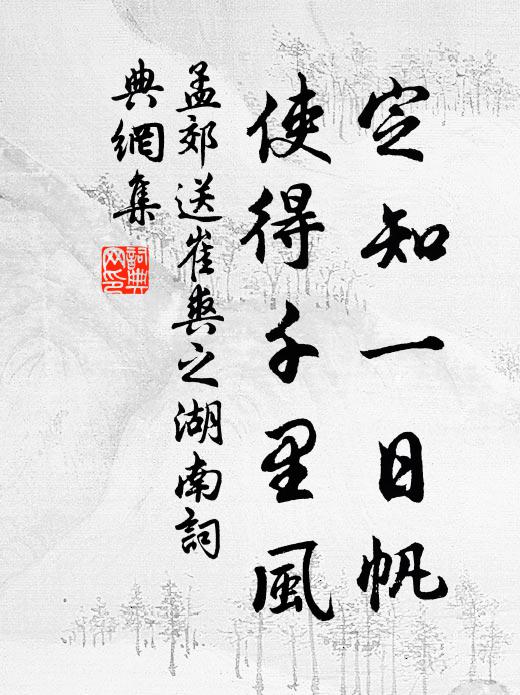 定知一日帆
使得千里風
孟郊送崔爽之湖南詞
典網集
詞典
网印